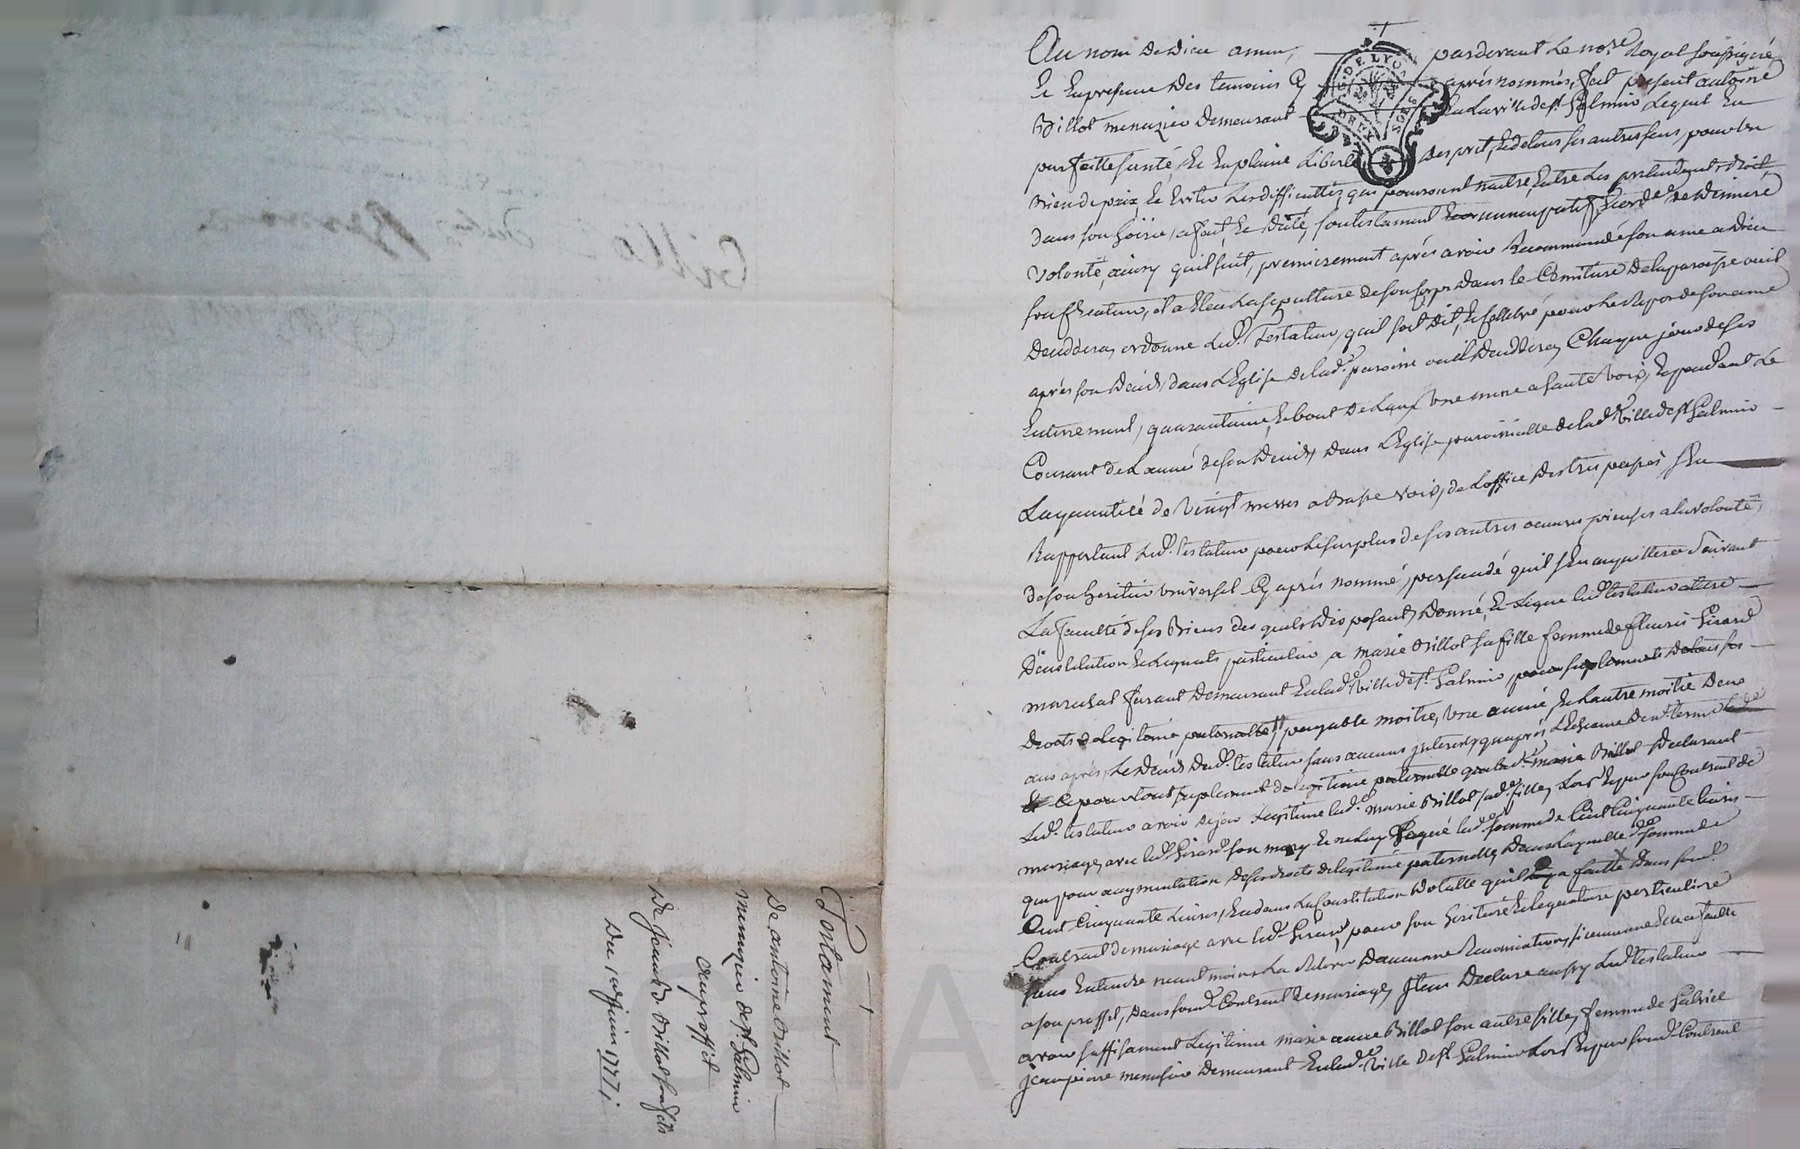 Testament
De antoine Billot
menuzier de st Galmier
au proffit
De Jean B. Billot son fils
Du 10e Juin 1771
Au nom de Dieu amen, pardevant Le nore Royal soussigné
Et En presence Des temoins Cy après nommés, fut présent antoine
Billot menuzier Demeurant En La ville de st Galmier Lequel En
parfaitte santé, Et En plaine Liberté Desprit, Et de tous ses autres sens, pour Le
Bien de paix Et Eviter Les difficultés qui pourroient naitre, Entre Les pretendants droit
dans son hoirie, a fait Et Dicté, son testament noncupatif, Et ordce de Derniere
volonté, ainsy quil suit, premierement après avoir Recommandé son ame a Dieu
son Createur, Il a Eleu La sepulture de son Corps Dans le Cemitiere De la paroisse ou il
Deceddera, ordonne Led. Testateur, quil soit dit, Et Cellebré pour Le Repos de son ame
après son Decés, dans L'Eglise De lad. paroisse ou il Deceddera, Chaque jour de ses
Enterrement, quarantaine, Et bout De Lan, Une messe a haute voix, Et pendant Le
Courant De L'année de son Decés, dans L'Eglise paroissialle de lad. ville de st Galmier
La quantité de vingt messes a basse voix, de L'office Des trepassés, s'En
Rapportant Led. testateur pour Le surplus de ses autres oeuvres pieuses a la volonté,
de son heritier universel Cy après nommé, persuadé quil s'En acquittera suivant
La faculté de ses Biens Des quels Disposant, Donne, Et Legue Led. testateur a titre
D'institution Et Legats particulier a marie Billot sa fille femme de fleurie Girard
marechal ferrant Demeurant En lad. ville de st Galmier, pour suplements de tous ses
Droits de legitime paternelle payable moitie, Une année, Et L'autre moitié Deux
ans après, Le decés Dud. testateur sans aucuns interest, qu'après L'Echeance Desd. termes
Et Ce pour tout suplement de legitime paternelle que lad. marie Billot Declarant
Led. testateur avoir dejea Legitimé lad. marie Billot sad. fille, Lors Et par son Contrat de
mariage, avec led. Girard son mary, Et En Luy payé lad. somme de Cent Cinquante livres
que pour augmentation de ses droits de legitime paternelle, Dans Laquelle de somme de
Cent Cinquante Livres, Et dans La Constitution Dotalle quil a faitte Dans sond.
Contrat de mariage avec led. Girard, pour son heritiere Et legataire particuliere
sans Entendre neant moins La Relever D'aucune Renonciation, si aucune Elle a faitte
a son proffit, Dans sond. Contrat de mariage, Item Declare aussy Led. testateur
avoir suffisament Legitimé marie anne Billot son autre fille, femme de Gabriel
Jean pierre menuisier Demeurant En lad. ville de st Galmier Lors Et par sond. Contrat